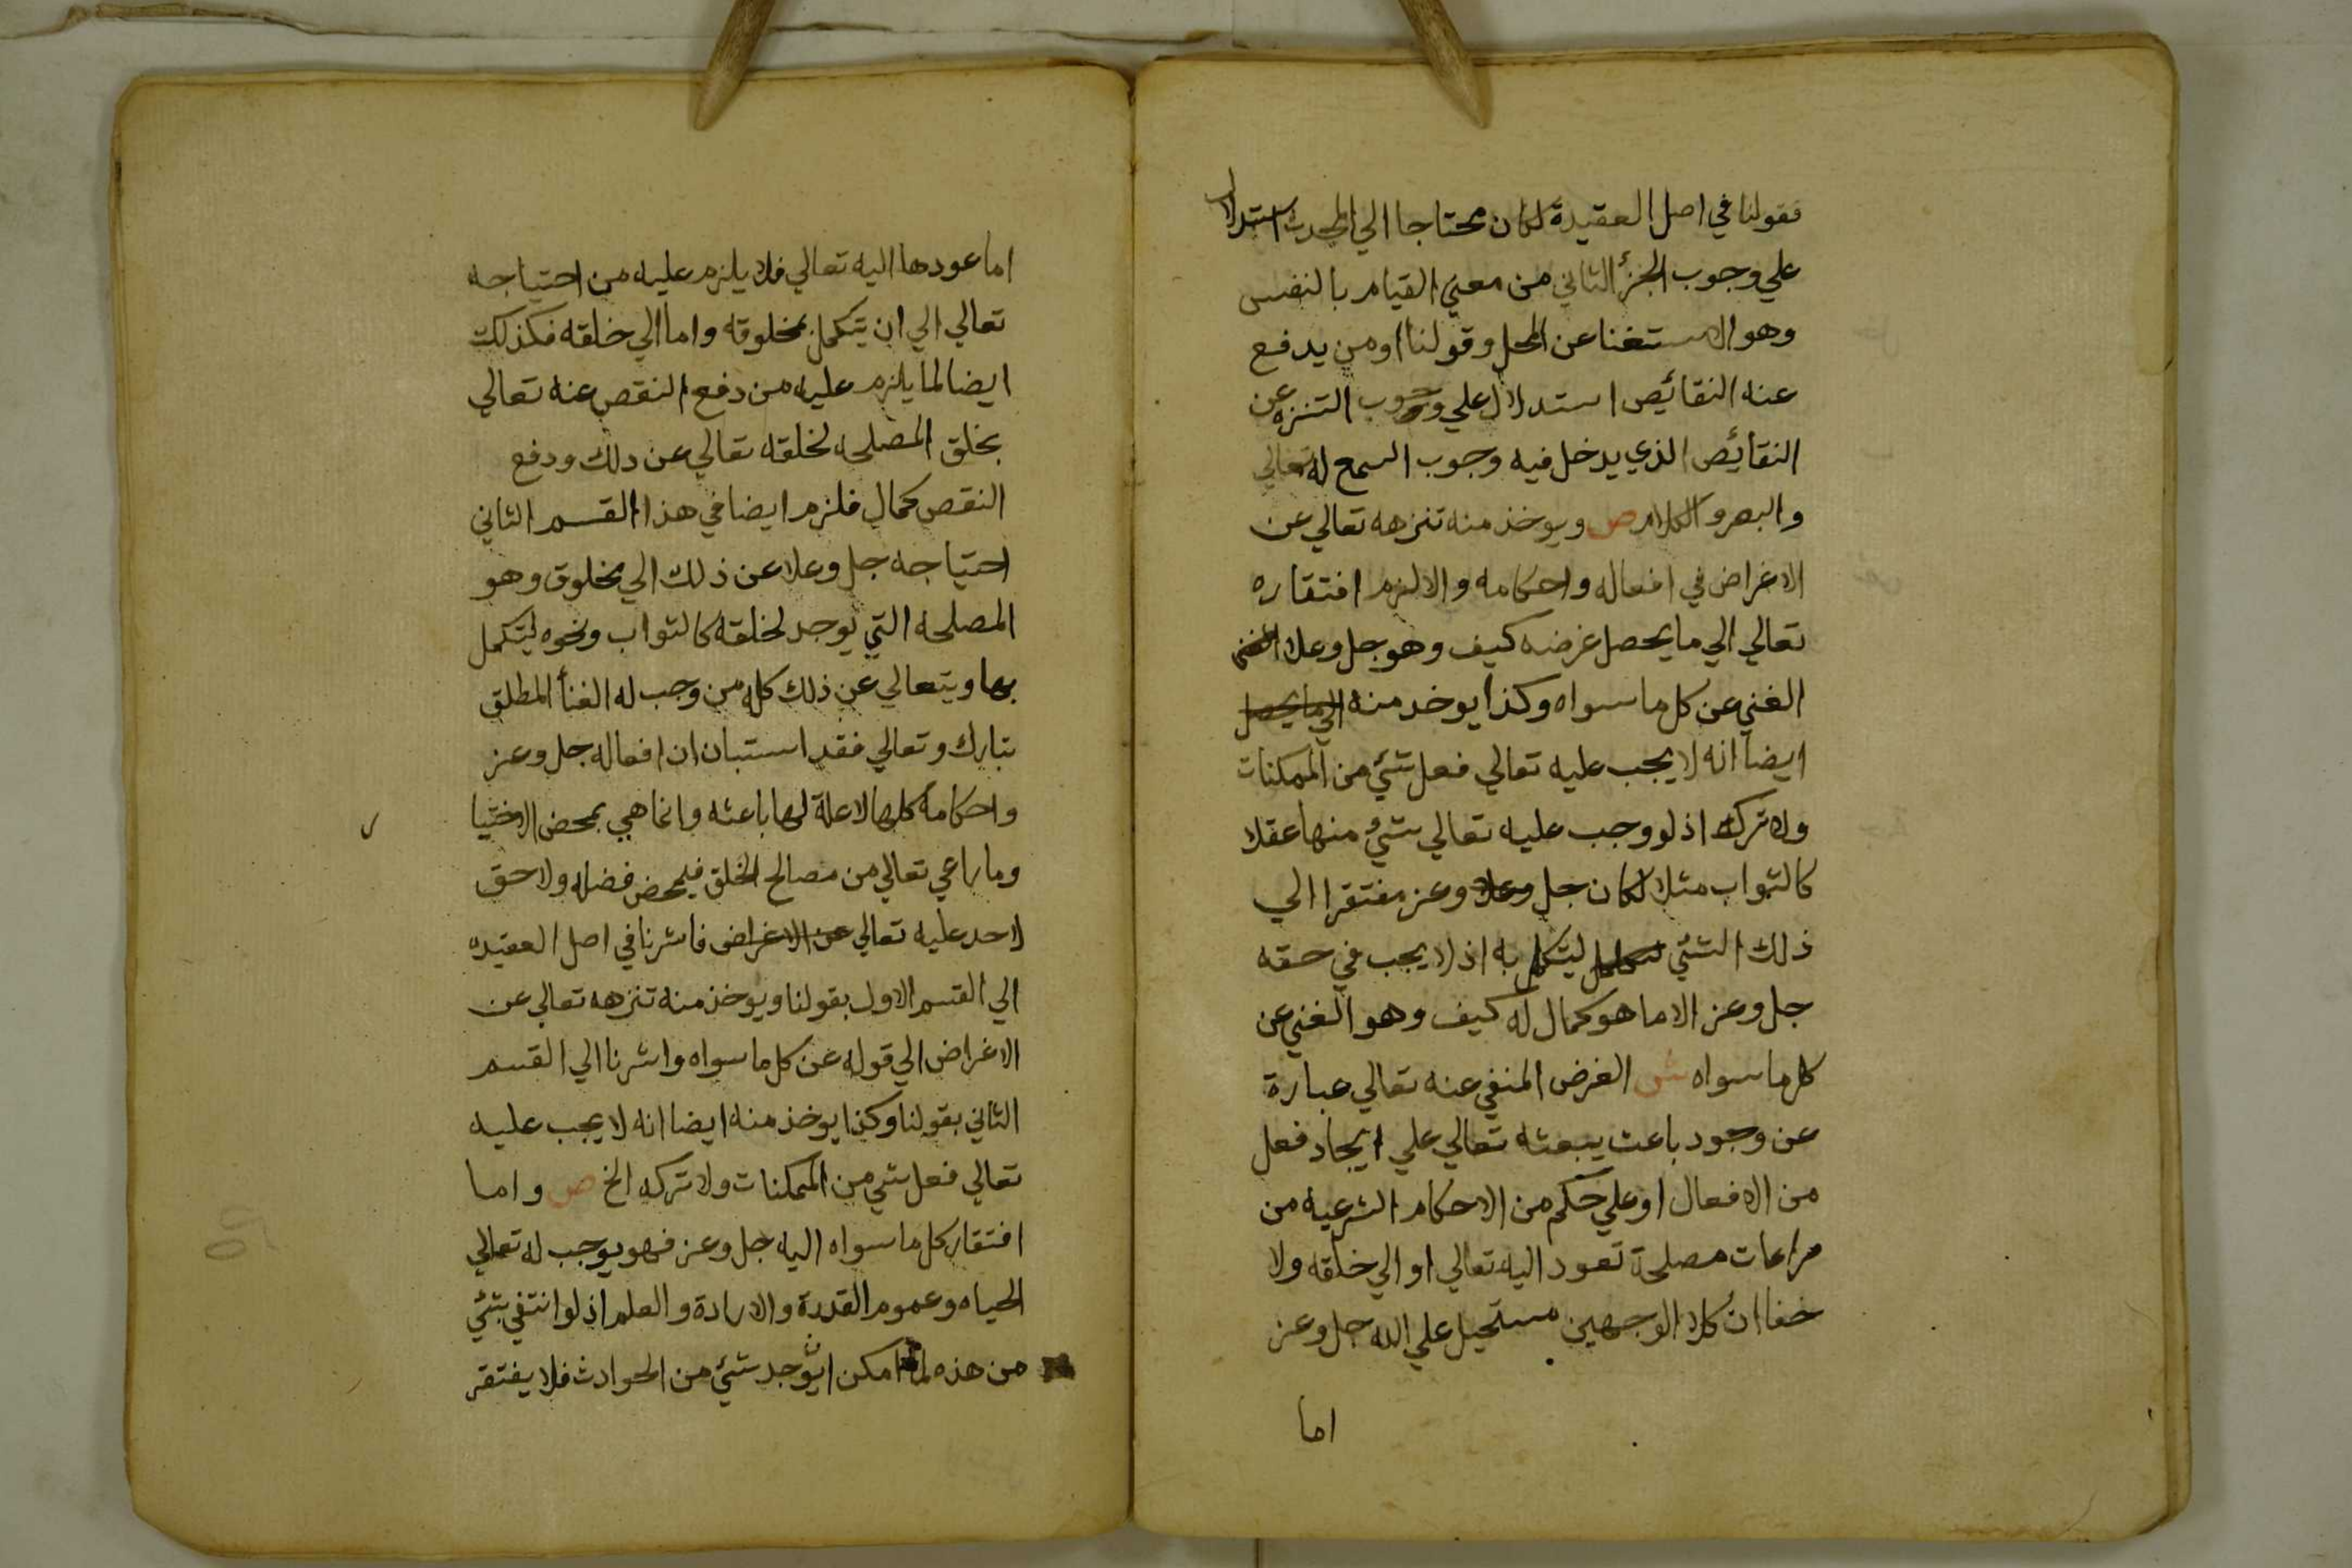 فقولنا في اصل العقيدة لكان محتاجا الي المحدث استدلال
علي وجوب الجزٔ الثاني من معني القيام بالنفس
وهو الاستغنا عن المحل وقولنا او من يدفع
عنه النقائص استدلال علي وجوب التنزه عن
النقائص الذي يدخل فيه وجوب السمع له تعالي
والبصر والكلام ص ويوخذ منه تنزهه تعالي عن
الاغراض في افعاله واحكامه والا لزم افتقاره
تعالي الي ما يحصل غرضه كيف وهو جل وعلا الغني
الغني عن كل ما سواه وكذا يوخد منه الي ما يحصل
ايضا انه لا يجب عليه تعالي فعل شئ من الممكنات
ولا تركه اذ لو وجب عليه تعالي شئ منها عقلا
كالثواب مثلا لكان جل وعلا وعز مفتقرا الي
ذلك الشئ ليتكمل به اذ لا يجب في حقه
جل وعز الا ما هو كمال له كيف وهو الغني عن
كل ما سواه ش الغرض المنفي عنه تعالي عبارة
عن وجود باعث يبعثه تعالي علي ايجاد فعل
من الافعال او علي حكم من الاحكام الشرعيه من
مراعات مصلحة تعود اليه تعالي او الي خلقه ولا
خفا ان كلا الوجهين مستحيل علي الله جل وعز
اما
اما عودها اليه تعالي فلا يلزم عليه من احتياجه
تعالي الي ان يتكمل بمخلوقه واما الي خلقه فكذلك
ايضا لما يلزم عليه من دفع النقص عنه تعالي
بخلق المصلحه لخلقه تعالي عن دلك ودفع
النقص كمال فلزم ايضا في هذا القسم الثاني
احتياجه جل وعلا عن ذلك الي مخلوق وهو
المصلحه التي توجد لخلقه كالثواب ونحوه ليتكمل
بها ويتعالي عن ذلك كله من وجب له الغنأ المطلق
تبارك وتعالي فقد استبان ان افعاله جل وعز
واحكامه كلها لا علة لها باعثه وانما هي بمحض الاختيا
وما راعي تعالي من مصالح الخلق فبمحض فضله ولا حق
لاحد عليه تعالي عن الاغراض فاشرنا في اصل العقيده
الي القسم الاول بقولنا ويوخذ منه تنزهه تعالي عن
الاغراض الي قوله عن كل ما سواه واشرنا الي القسم
الثاني بقولنا وكذا يوخذ منه ايضا انه لا يجب عليه
تعالي فعل شي من الممكنات ولا تركه الخ ص واما
افتقار كل ما سواه اليه جل وعز فهو يوجب له تعالي
الحياه وعموم القدرة والارادة والعلم اذ لو انتفي شئ
من هذه لما امكن ان يوجد شئ من الحوادث فلا يفتقر